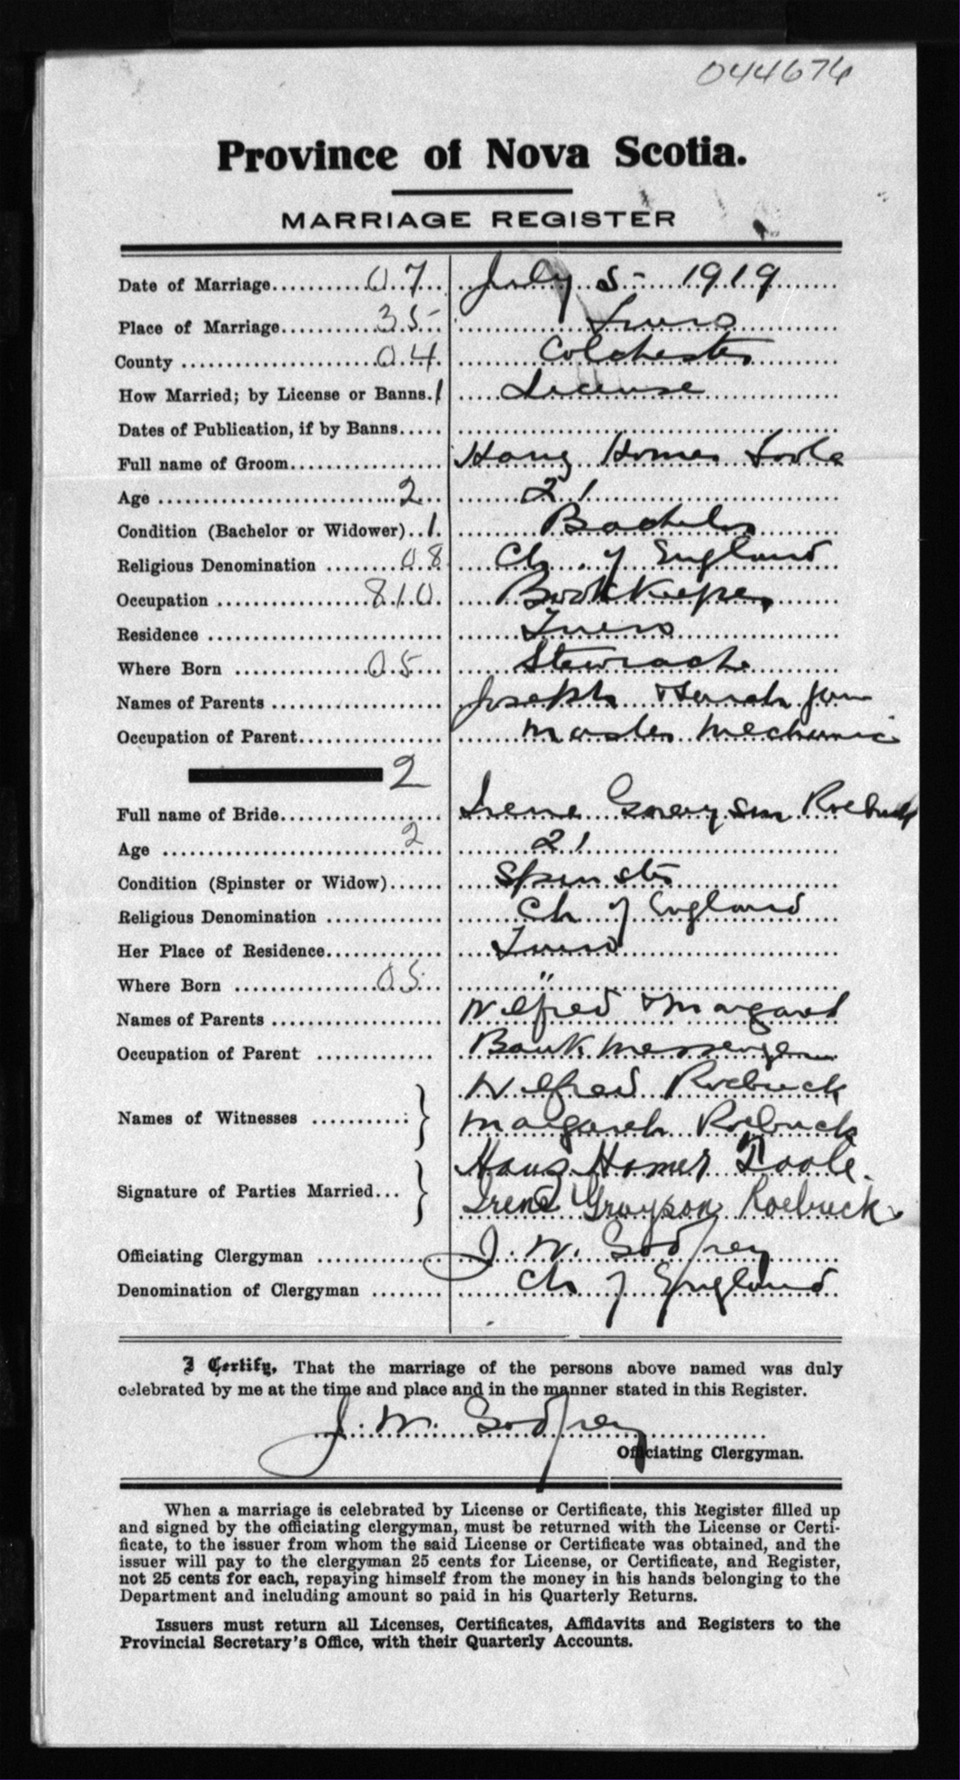 044676
Province of Nova Scotia.
MARRIAGE REGISTER
Date of Marriage 07 July 5 - 1919
Place of Marriage 35 Truro
County 04 Colchester
How Married; by License or Banns. 1 License
Dates of Publication, if by Banns
Full name of Groom Harry Homer Toole
Age 2 21
Condition (Bachelor or Widower) 1 Bachelor
Religious Denomination 08 Ch of England
Occupation 810 Bookkeeper
Residence Truro
Where Born 05 Stewiacke
Names of Parents Joseph & Sarah Jane
Occupation of Parent Master Mechanic
2
Full name of Bride Irene Grayson Roebuck
Age 2 21
Condition (Spinster or Widow) Spinster
Religious Denomination Ch of England
Her Place of Residence Truro
Where Born 05 "
Names of Parents Wilfred & Margaret
Occupation of Parent Bank Messenger
Wilfred Roebuck
Names of Witnesses
Margaret Roebuck
Harry Homer Toole.
Signature of Parties Married
Irene Grayson Roebuck
Officiating Clergyman J. W. Godfrey
Denomination of Clergyman Ch of England
I Certify, That the marriage of the persons above named was duly
celebrated by me at the time and place and in the manner stated in this Register.
J. W. Godfrey
Officiating Clergyman.
When a marriage is celebrated by License or Certificate, this Register filled up
and signed by the officiating clergyman, must be returned with the License or Certi-
ficate, to the issuer from whom the said License or Certificate was obtained, and the
issuer will pay to the clergyman 25 cents for License, or Certificate, and Register,
not 25 cents for each, repaying himself from the money in his hands belonging to the
Department and including amount so paid in his Quarterly Returns.
Issuers must return all Licenses, Certificates, Affidavits and Registers to the
Provincial Secretary's Office, with their Quarterly Accounts.